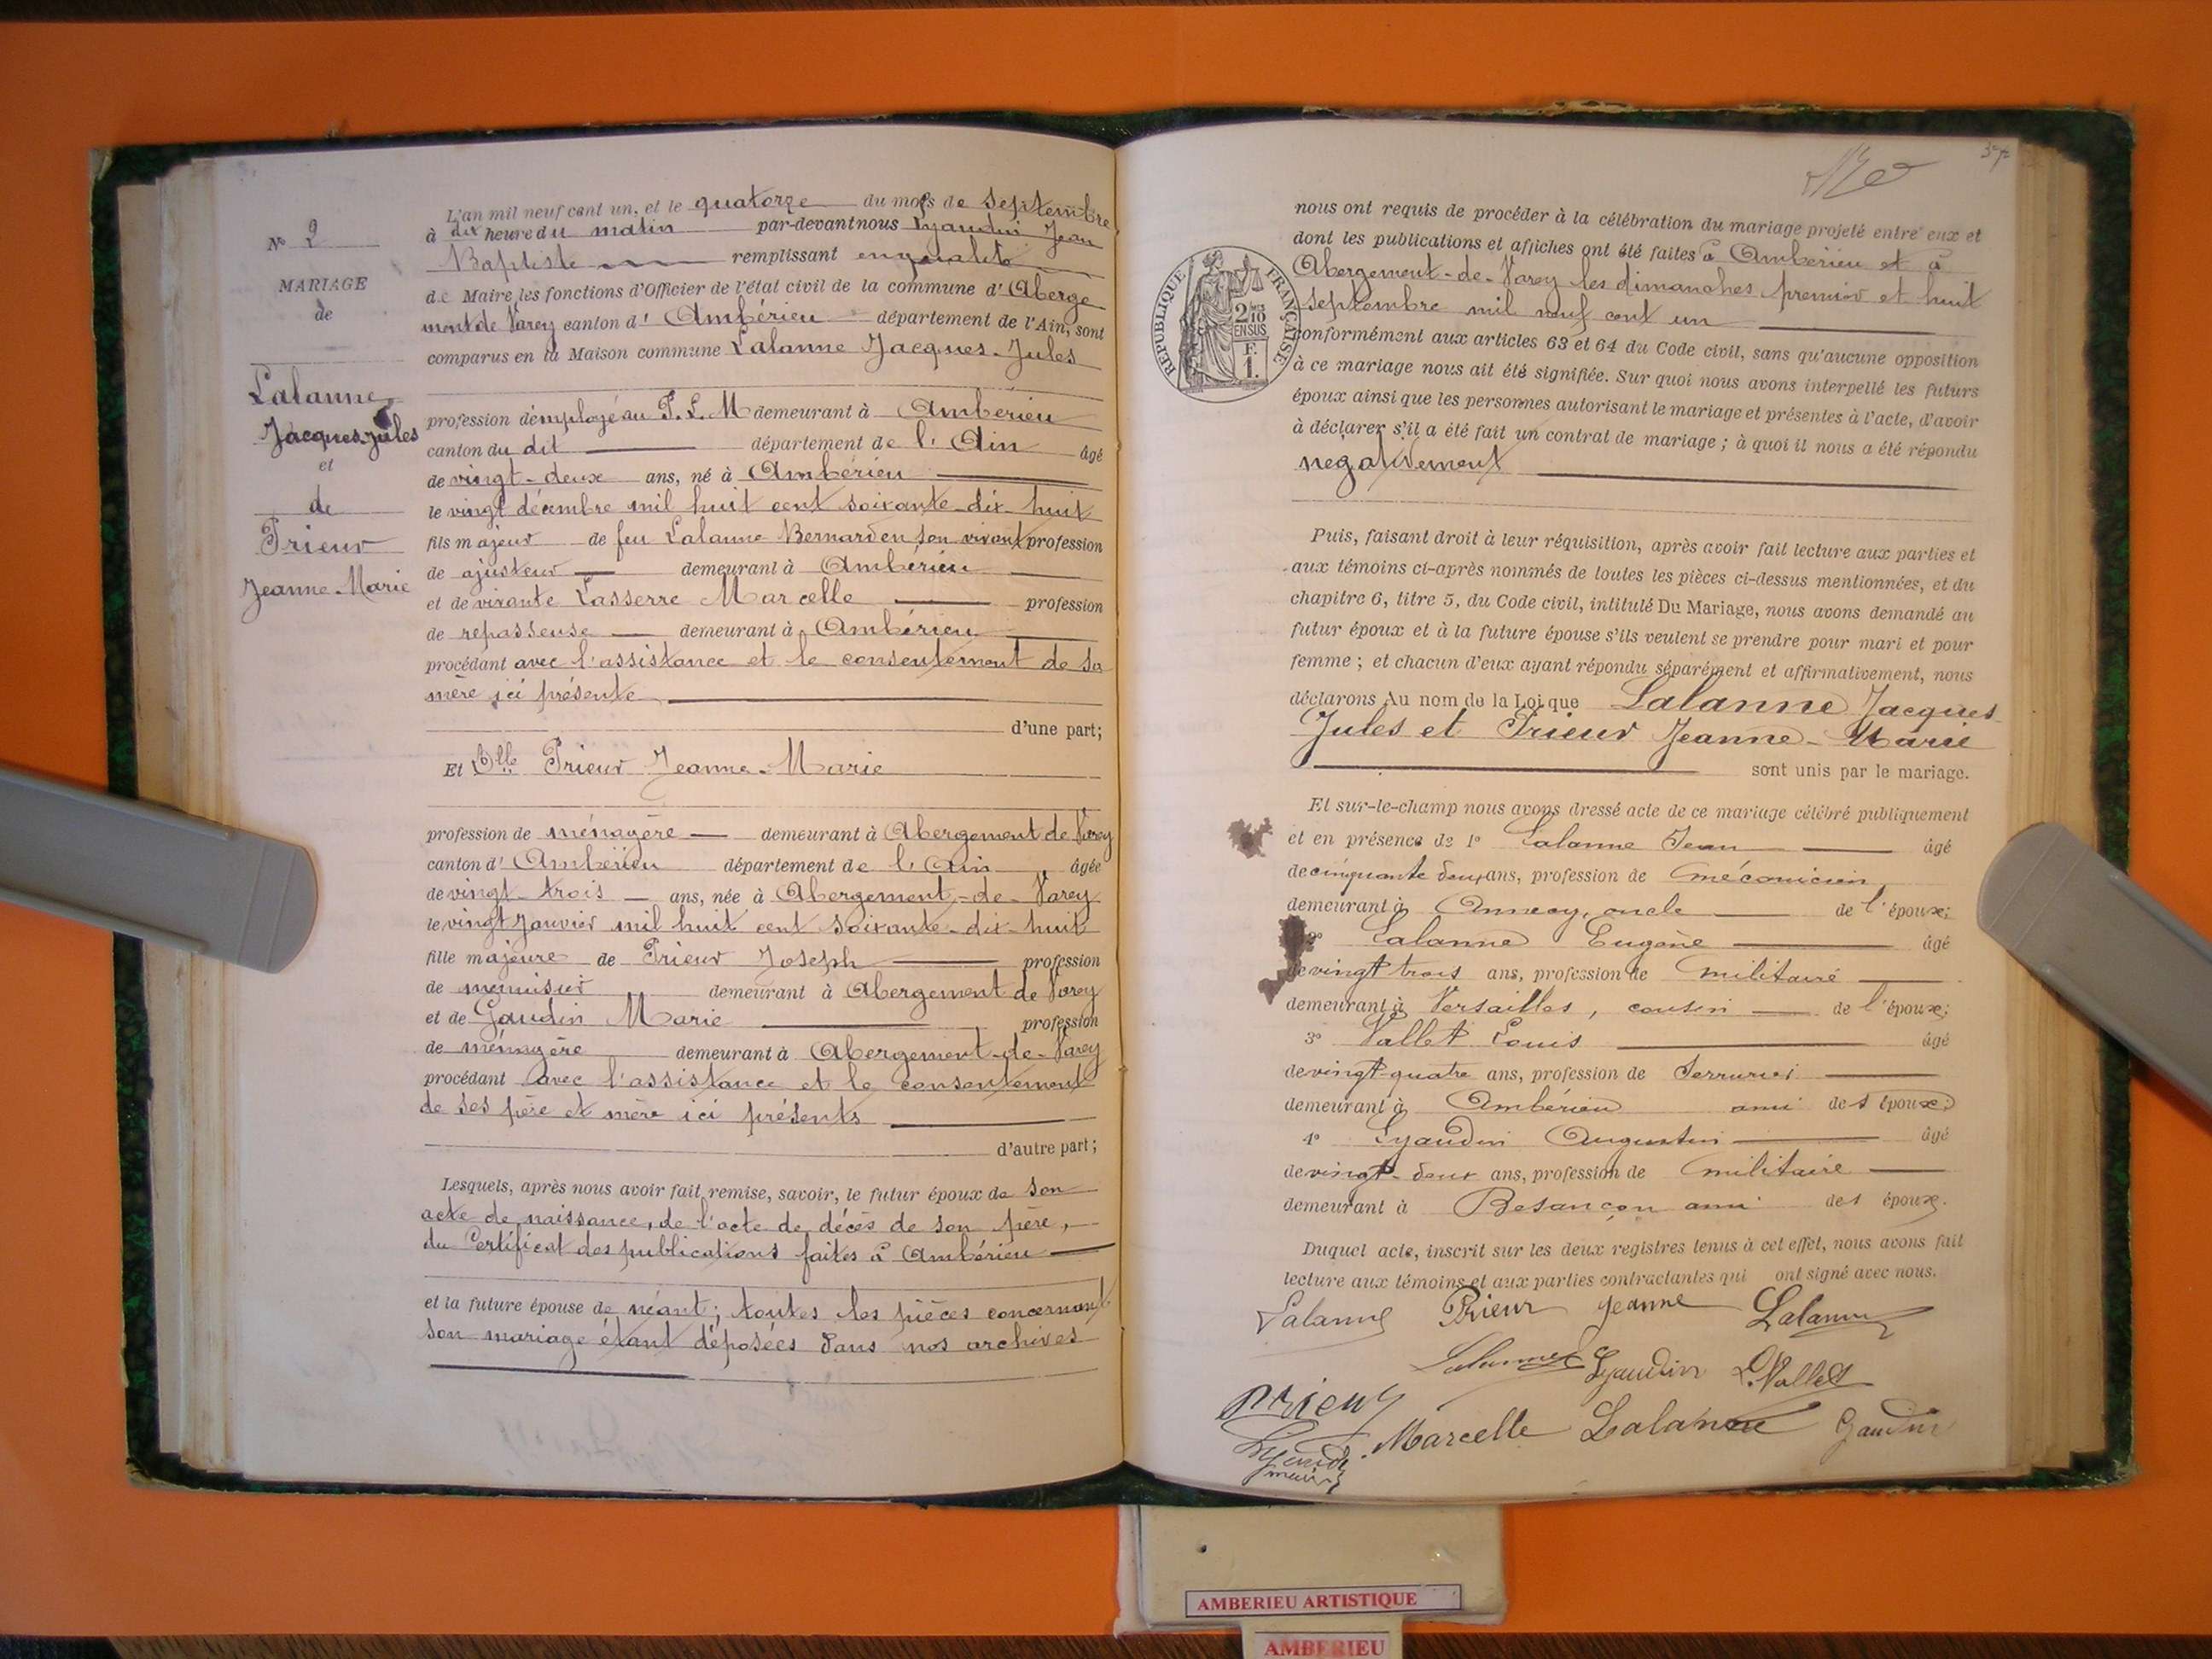 N° 9
MARIAGE
de
Lalanne
Jacques-Jules
et
de
Prieur
Jeanne-Marie
L'an mil neuf cent un, et le quatorze du mois de Septembre
à dix heure du matin par-devant nous Lyaudin Jean
Baptiste remplissant en qualité
de Maire les fonctions d'Officier de l'état civil de la commune d' Aberge
ment de Varey canton d' Ambérieu département de l'Ain, sont
comparus en la Maison commune Lalanne Jacques-Jules
profession d'employé au P. L. M demeurant à Ambérieu
canton du dit département de l' Ain âgé
de vingt-deux ans, né à Ambérieu
le vingt décembre mil huit cent soixante-dix-huit
fils majeur de feu Lalanne Bernard en son vivant profession
de ajusteur demeurant à Ambérieu
et de vivante Lasserre Marcelle profession
de repasseuse demeurant à Ambérieu
procédant avec l'assistance et le consentement de sa
mère ici présente
d'une part;
Et Dlle Prieur Jeanne-Marie
profession de ménagère demeurant à Abergement de Varey
canton d' Ambérieu département de l' Ain âgée
de vingt-trois ans, née à Abergement-de-Varey
le vingt Janvier mil huit cent soixante-dix-huit
fille majeure de Prieur Joseph profession
de menuisier demeurant à Abergement de Varey
et de Gaudin Marie profession
de ménagère demeurant à Abergement-de-Varey
procédant avec l'assistance et le consentement
de ses père et mère ici présents
d'autre part;
Lesquels, après nous avoir fait remise, savoir, le futur époux de son
acte de naissance, de l'acte de décès de son père,
du Certificat des publications faites à Ambérieu
et la future épouse de néant; toutes les pièces concernant
son mariage étant déposées dans nos archives
37
nous ont requis de procéder à la célébration du mariage projeté entre eux et
dont les publications et affiches ont été faites à Ambérieu et à
Abergement-de-Varey les dimanches premier et huit
Septembre mil neuf cent un
conformément aux articles 63 et 64 du Code civil, sans qu'aucune opposition
à ce mariage nous ait été signifiée. Sur quoi nous avons interpellé les futurs
époux ainsi que les personnes autorisant le mariage et présentes à l'acte, d'avoir
à déclarer s'il a été fait un contrat de mariage ; à quoi il nous a été répondu
négativement
RÉPUBLIQUE FRANÇAISE
2/10
EN SUS
F.
1.
Puis, faisant droit à leur réquisition, après avoir fait lecture aux parties et
aux témoins ci-après nommés de toutes les pièces ci-dessus mentionnées, et du
chapitre 6, titre 5, du Code civil, intitulé Du Mariage, nous avons demandé au
futur époux et à la future épouse s'ils veulent se prendre pour mari et pour
femme ; et chacun d'eux ayant répondu séparément et affirmativement, nous
déclarons Au nom de la Loi que Lalanne Jacques
Jules et Prieur Jeanne-Marie
sont unis par le mariage.
Et sur-le-champ nous avons dressé acte de ce mariage célébré publiquement
et en présence de 1° Lalanne Jean âgé
de cinquante deux ans, profession de mécanicien
demeurant à Annecy, oncle de l'époux;
2° Lalanne Eugène âgé
de vingt trois ans, profession de militaire
demeurant à Versailles, cousin de l'époux;
3° Vallet Louis âgé
de vingt-quatre ans, profession de Serrurier
demeurant à Ambérieu ami des époux;
4° Lyaudin Augustin âgé
de vingt-deux ans, profession de militaire
demeurant à Besançon ami des époux.
Duquel acte, inscrit sur les deux registres tenus à cet effet, nous avons fait
lecture aux témoins et aux parties contractantes qui ont signé avec nous.
Lalanne Prieur Jeanne Lalanne
Lalanne Lyaudin L. Vallet
Prieur
Marcelle Lalanne Gaudin
Lyaudin
maire
AMBERIEU ARTISTIQUE
AMBERIEU